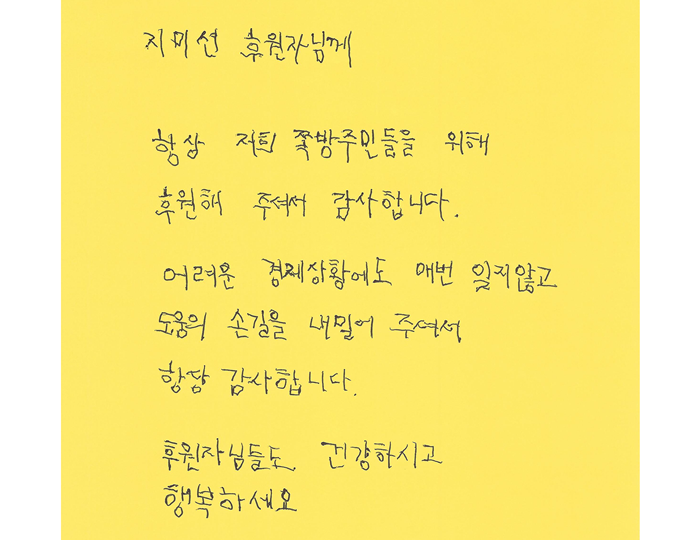 지미션 후원자님께
항상 저희 쪽방주민들을 위해
후원해 주셔서 감사합니다.
어려운 경제상황에도 매번 잊지않고
도움의 손길을 내밀어 주셔서
항당 감사합니다.
후원자님들도 건강하시고
행복하세요